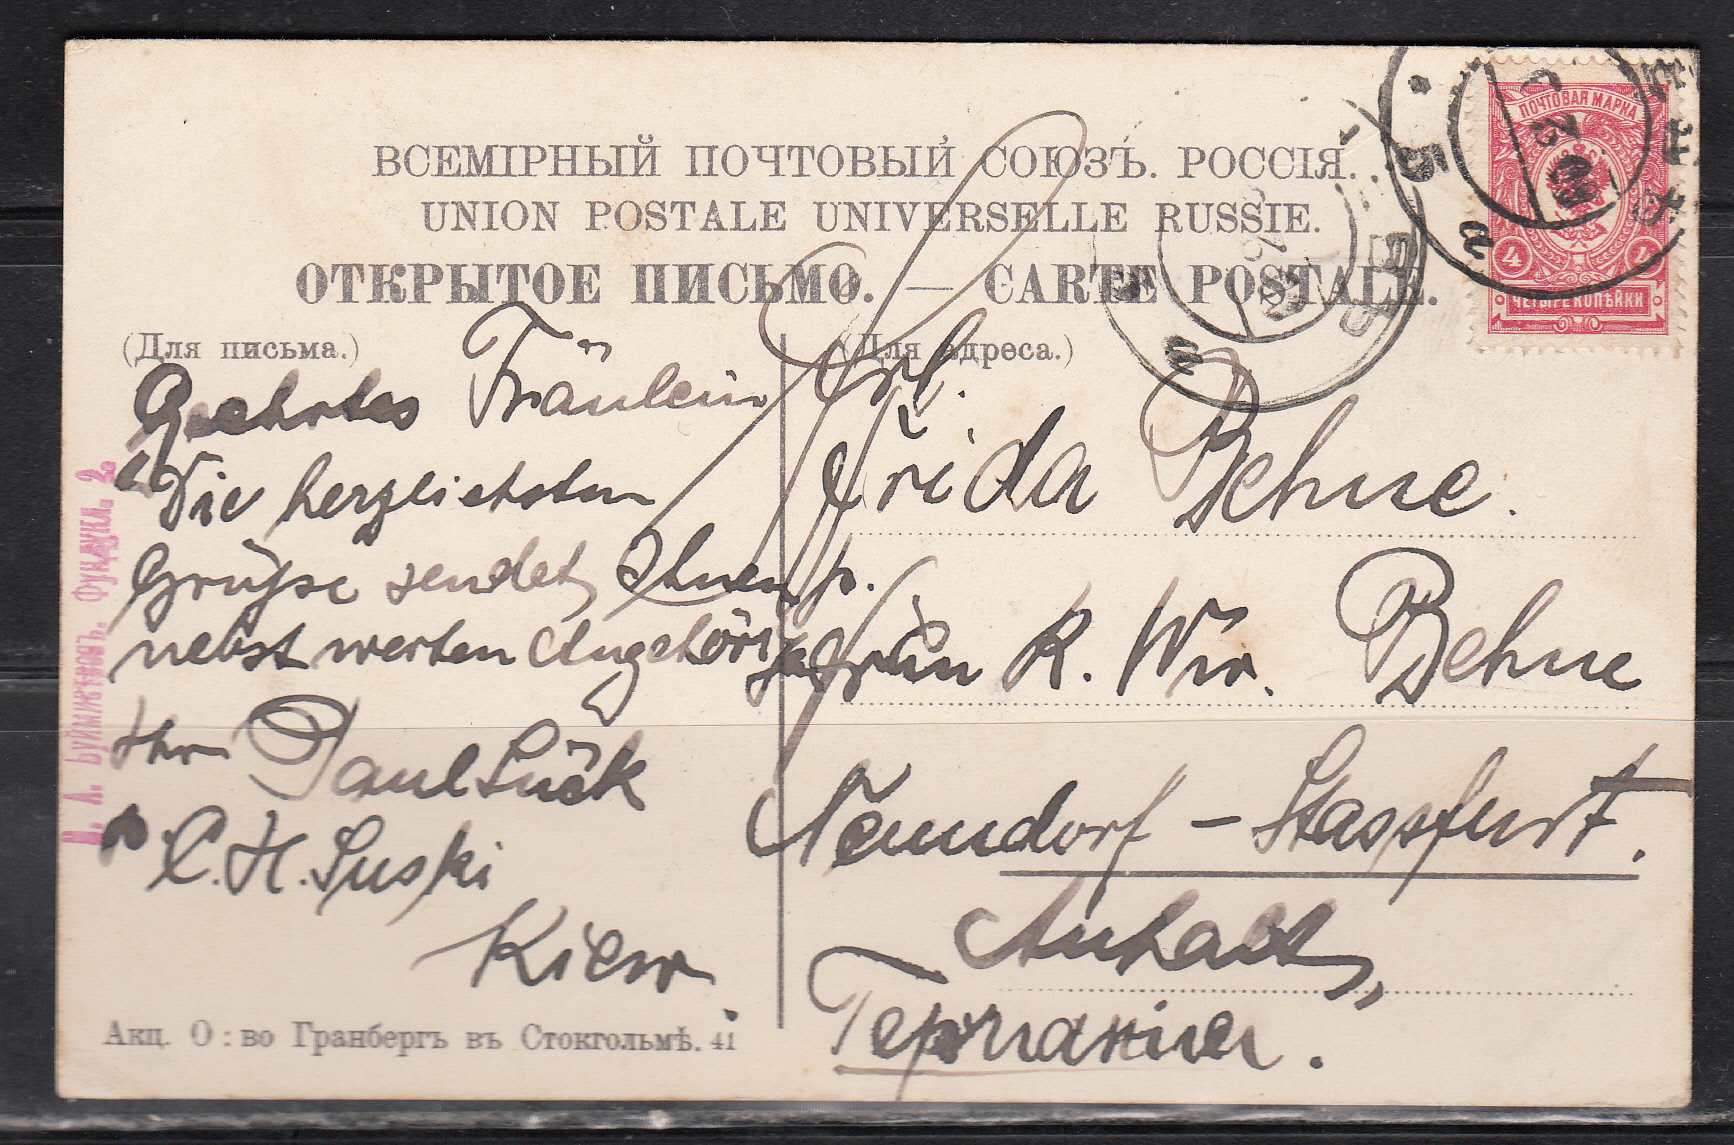 ВСЕМІРНЫЙ ПОЧТОВЫЙ СОЮЗЪ. РОССІЯ.
UNION POSTALE UNIVERSELLE RUSSIE.
ОТКРЫТОЕ ПИСЬМО. — CARTE POSTALE.
(Для письма.)
Geehrtes Fräulein
Die herzlichsten
Grüße sendet Ihnen
nebst werten Angehörig
Ihr Paul Lück
C. H. Suski
Kiew
(Для адреса.)
Frl.
Frida Behne.
R. Ww. Behne
Neundorf – Stassfurt.
Anhalt,
Германия.
Акц. О:во Гранбергъ въ Стокгольмѣ. 41
Фундукл. 2.
ПОЧТОВАЯ МАРКА
4 4
ЧЕТЫРЕ КОПѢЙКИ
5
а
а